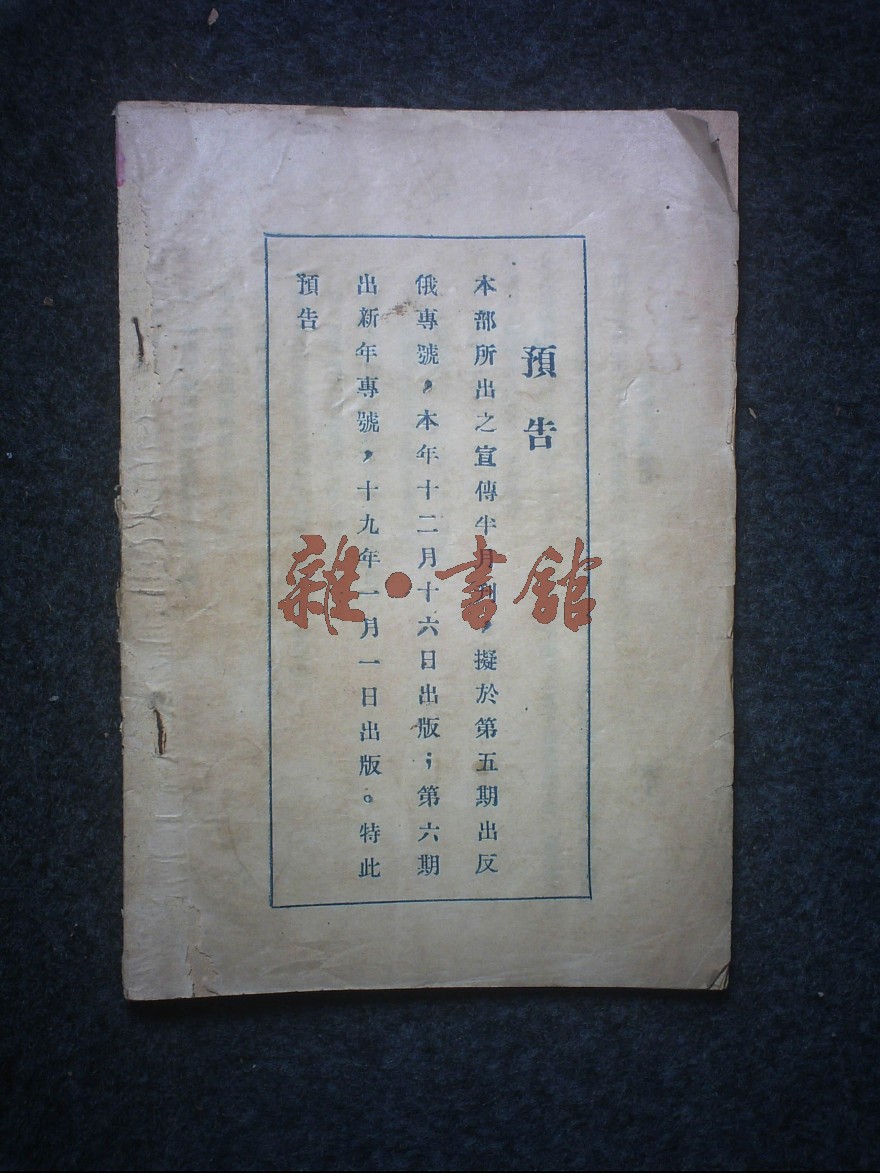 預告
本部所出之宣傳半月刊，擬於第五期出反
俄專號，本年十二月十六日出版；第六期
出新年專號，十九年一月一日出版。特此
預告
雜·書館